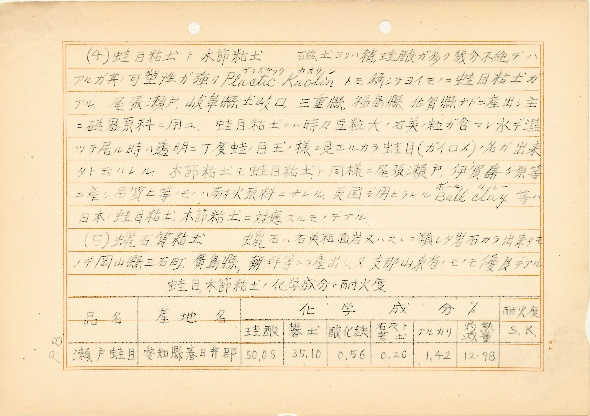 (4) 蛙目粘土ト木節粘土 磁土ヨリハ稍珪酸ガ多ク幾分不純デハ
アルガ其可塑性ガ強ク Plastic Kaolin トモ稱シテヨイモノニ蛙目粘土ガ
アル 尾張瀬戸、岐阜縣土岐口 三重縣、福島縣、佐賀縣ナドニ産出シ主
ニ磁器原料ニ用ユ、蛙目粘土ニハ時々豆粒大ノ石英ノ粒ガ含マレ水デ濕
ツテ居ル時ハ透明ニ丁度蛙ノ目玉ノ様ニ見エルカラ蛙目(ガイロメ)ノ名ガ出來
タト云ハレル 木節粘土モ蛙目粘土ト同様ニ尾張瀬戸、伊賀 等
ニ産シ品質上等ノモノハ耐火原料ニサレル、英國デ用ヒラレル Ball clay 等ハ
日本ノ蛙目粘土木節粘土ニ対應スルモノデアル、
(5) 蠟石質粘土 蠟石ハ石英粗面岩又ハコレニ類シタ岩石カラ出來タモ
ノデ岡山縣三石町、廣島縣、朝鮮等ニ産出シ又支那山東省ノモノモ優良デアル
蛙目木節粘土ノ化學成分ト耐火度
品名 産地名 化學成分% 耐火度 S.K.
珪酸 礬土 酸化鉄 石灰ト苦土 アルカリ 灼熱減量
瀬戸蛙目 愛知縣春日井郡 50.05 35.10 0.56 0.20 1.42 12.98